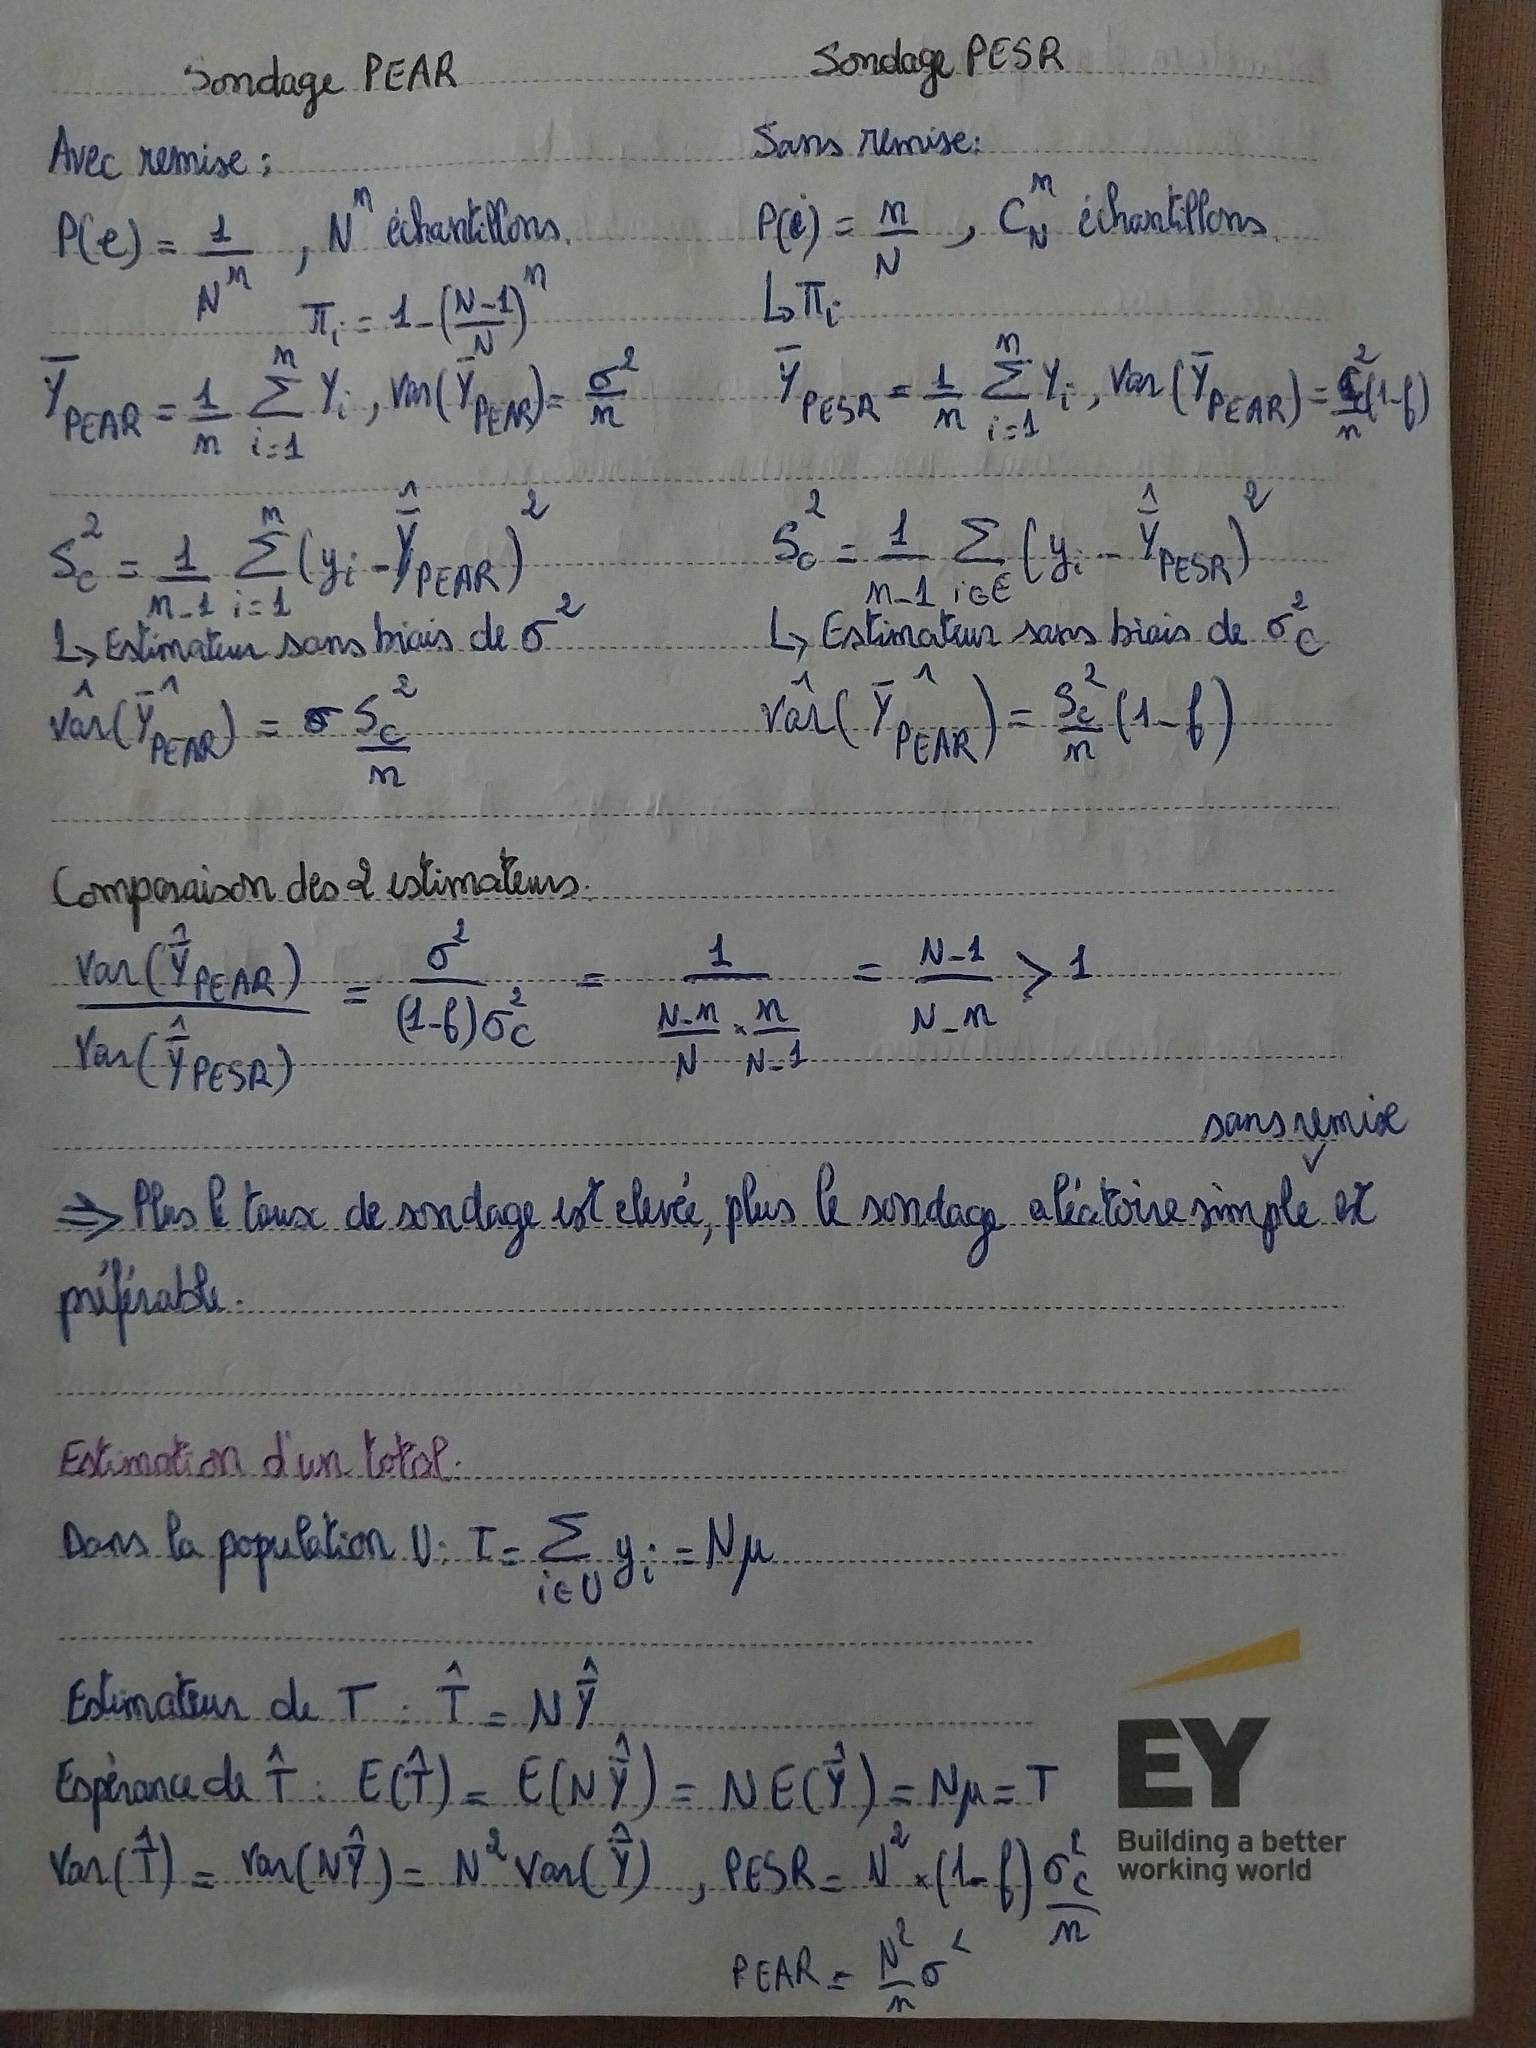 Sondage PEAR
Avec remise :
P(e) = 1/N^n , N^n échantillons.
π_i = 1 - ((N-1)/N)^n
Ȳ_PEAR = 1/n Σ_{i=1}^{n} Y_i , var(Ȳ_PEAR) = σ²/n
S_c² = 1/(n-1) Σ_{i=1}^{n} (y_i - Ȳ̂_PEAR)²
↳ Estimateur sans biais de σ²
vâr(Ȳ̂_PEAR) = S_c²/n
Sondage PESR
Sans remise :
P(i) = n/N , C_N^n échantillons.
↳ π_i
Ȳ_PESR = 1/n Σ_{i=1}^{n} Y_i , Var(Ȳ_PEAR) = σ_c²/n (1-f)
S_c² = 1/(n-1) Σ_{i∈E} (y_i - Ȳ̂_PESR)²
↳ Estimateur sans biais de σ_c²
vâr(Ȳ̂_PEAR) = S_c²/n (1-f)
Comparaison des 2 estimateurs.
Var(Ȳ̂_PEAR)/Var(Ȳ̂_PESR) = σ²/((1-f)σ_c²) = 1/((N-n)/N × n/(N-1)) = (N-1)/(N-n) > 1
⇒ Plus le taux de sondage est elevée, plus le sondage aléatoire simple sans remise est
préférable.
Estimation d'un total.
Dans la population U : T = Σ_{i∈U} y_i = Nμ
Estimateur de T : T̂ = N Ȳ̂
Espérance de T̂ : E(T̂) = E(N Ȳ̂) = N E(Ȳ̂) = Nμ = T
Var(T̂) = Var(NȲ̂) = N² Var(Ȳ̂) , PESR = N² × (1-f) σ_c²/n
PEAR = N²/n σ²
EY
Building a better
working world